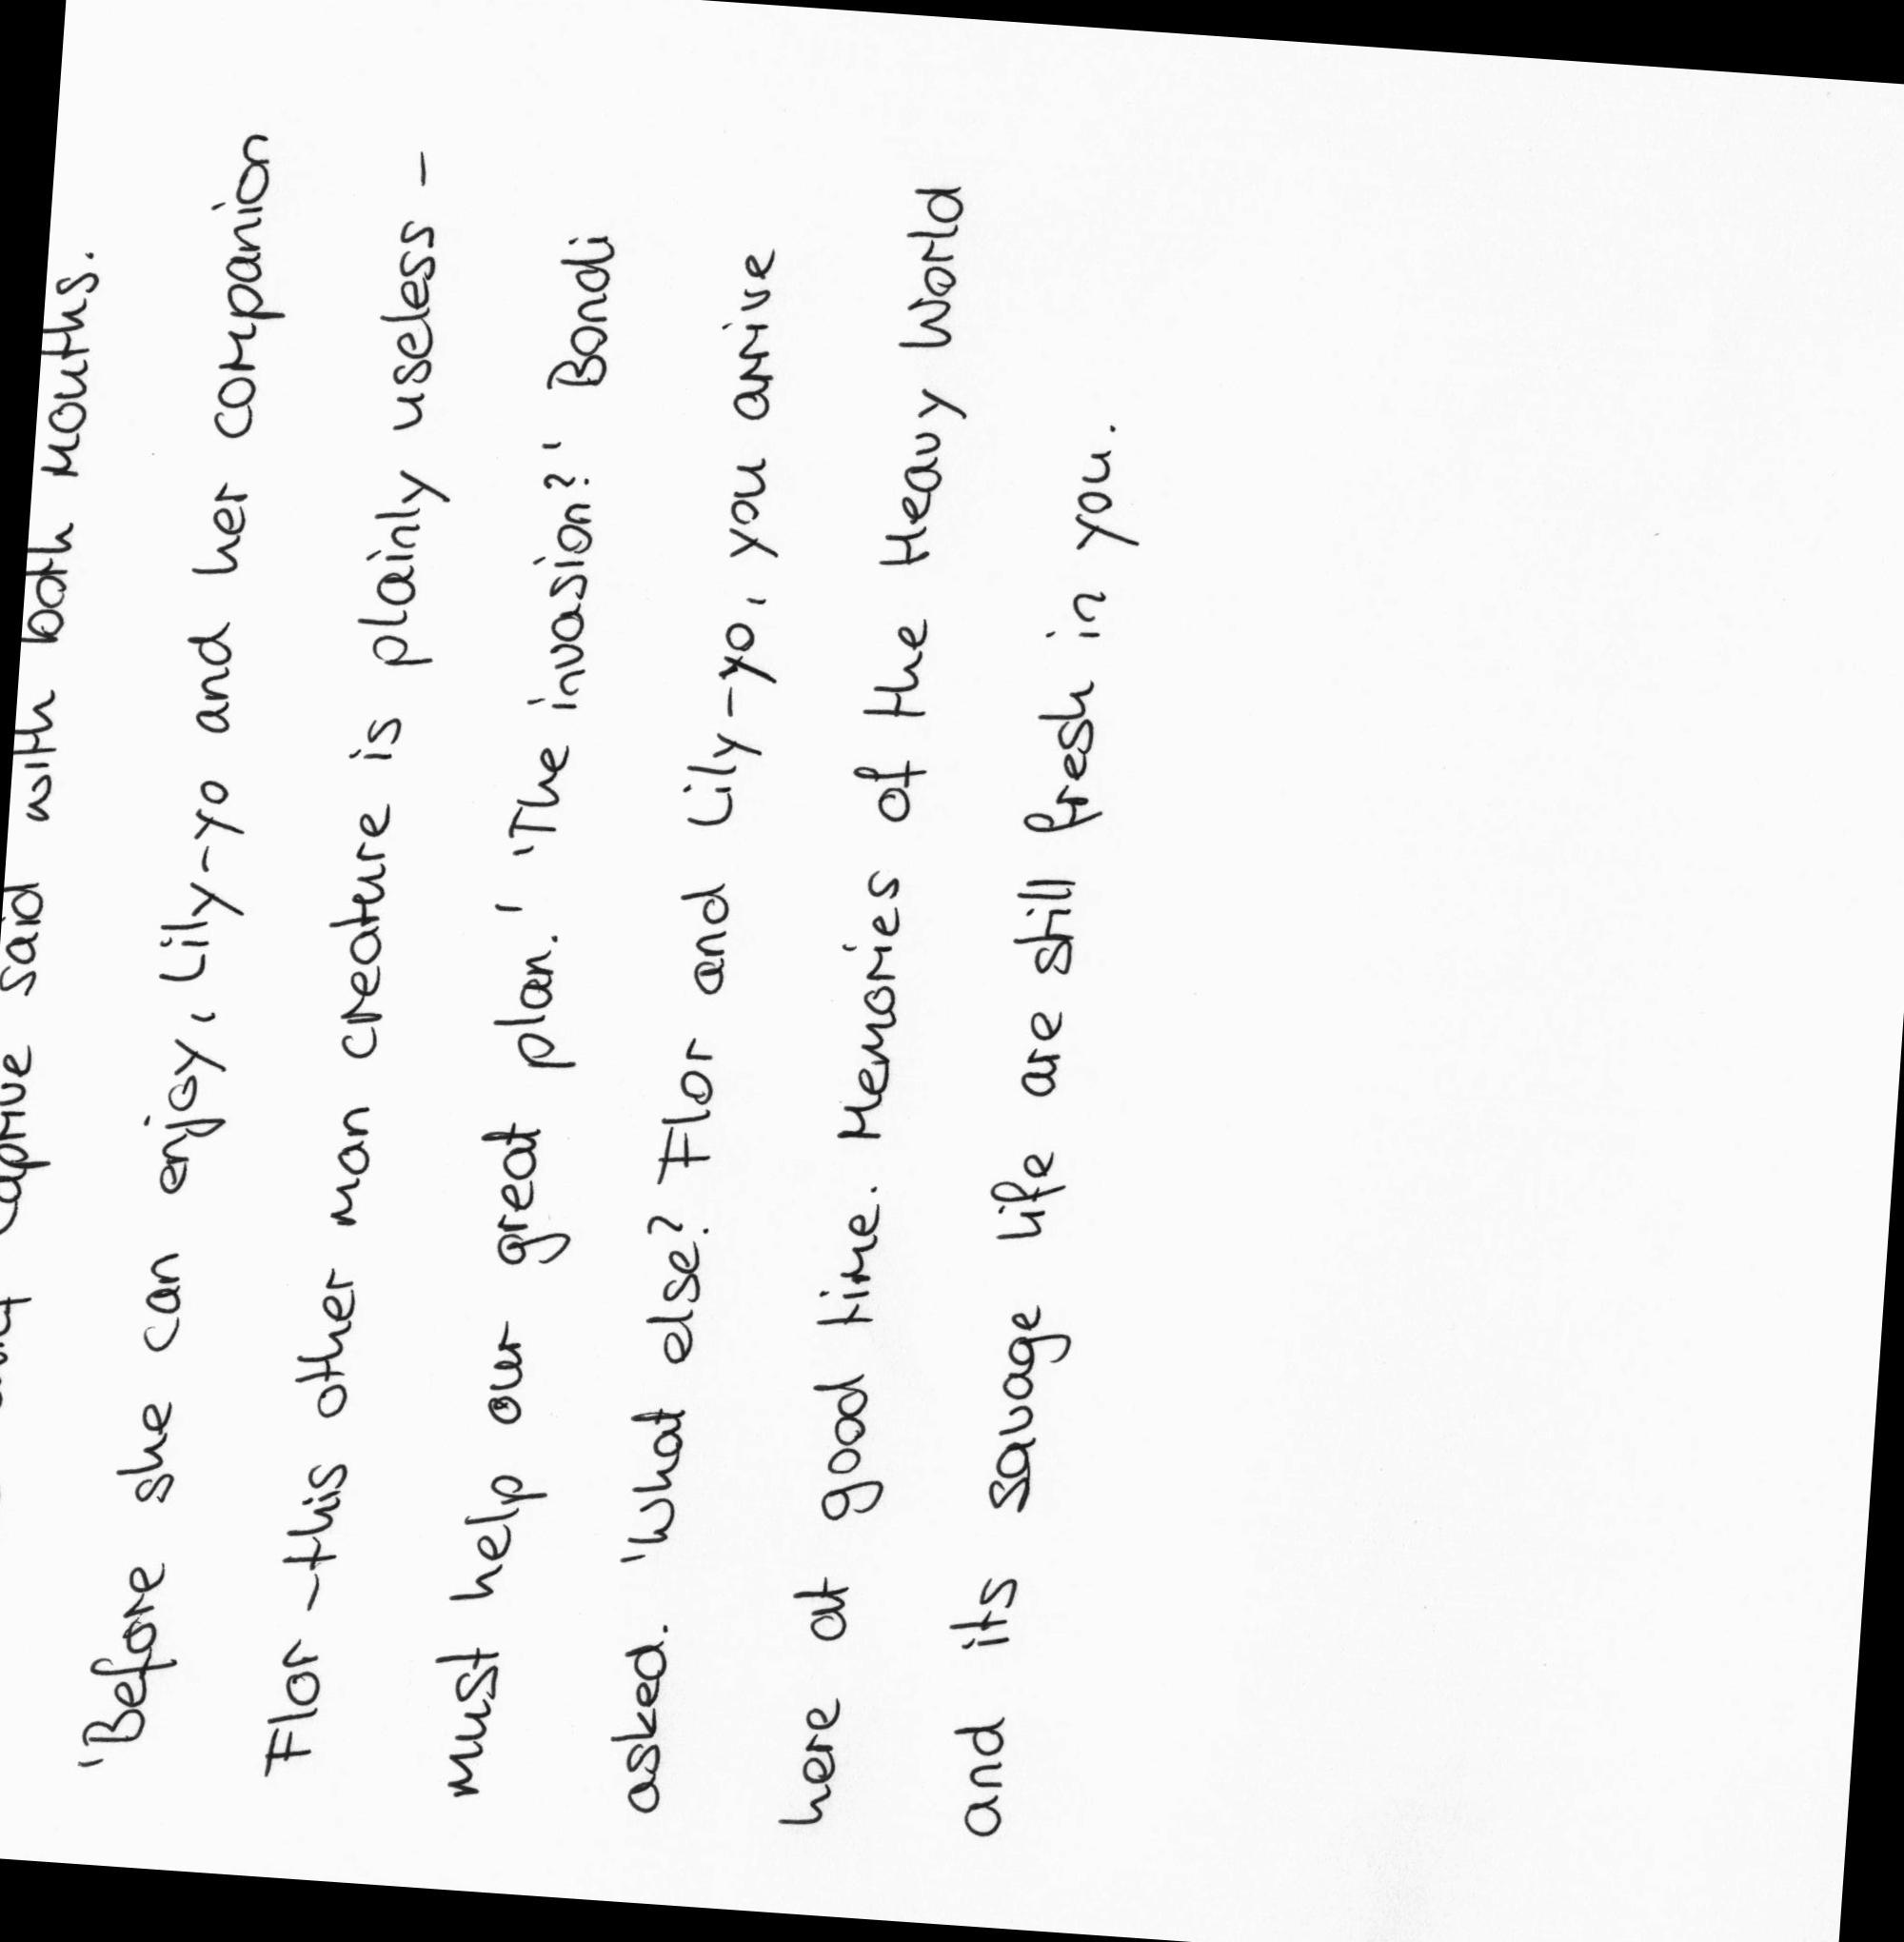 Captive said with both mouths.
'Before she can enjoy, Lily-yo and her companion
Flor - this other man creature is plainly useless -
must help our great plan.' 'The invasion?' Bondi
asked. 'What else? Flor and Lily-yo, you arrive
here at good time. Memories of the Heavy World
and its savage life are still fresh in you.